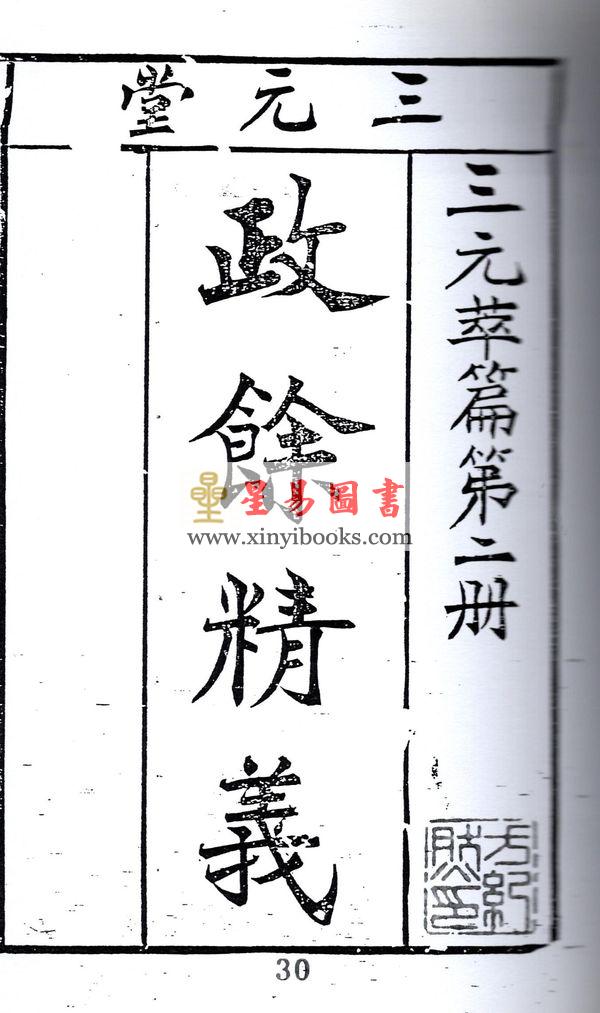 三元堂
三元萃篇第二册
政餘精義
星易圖書
www.xinyibooks.com
30